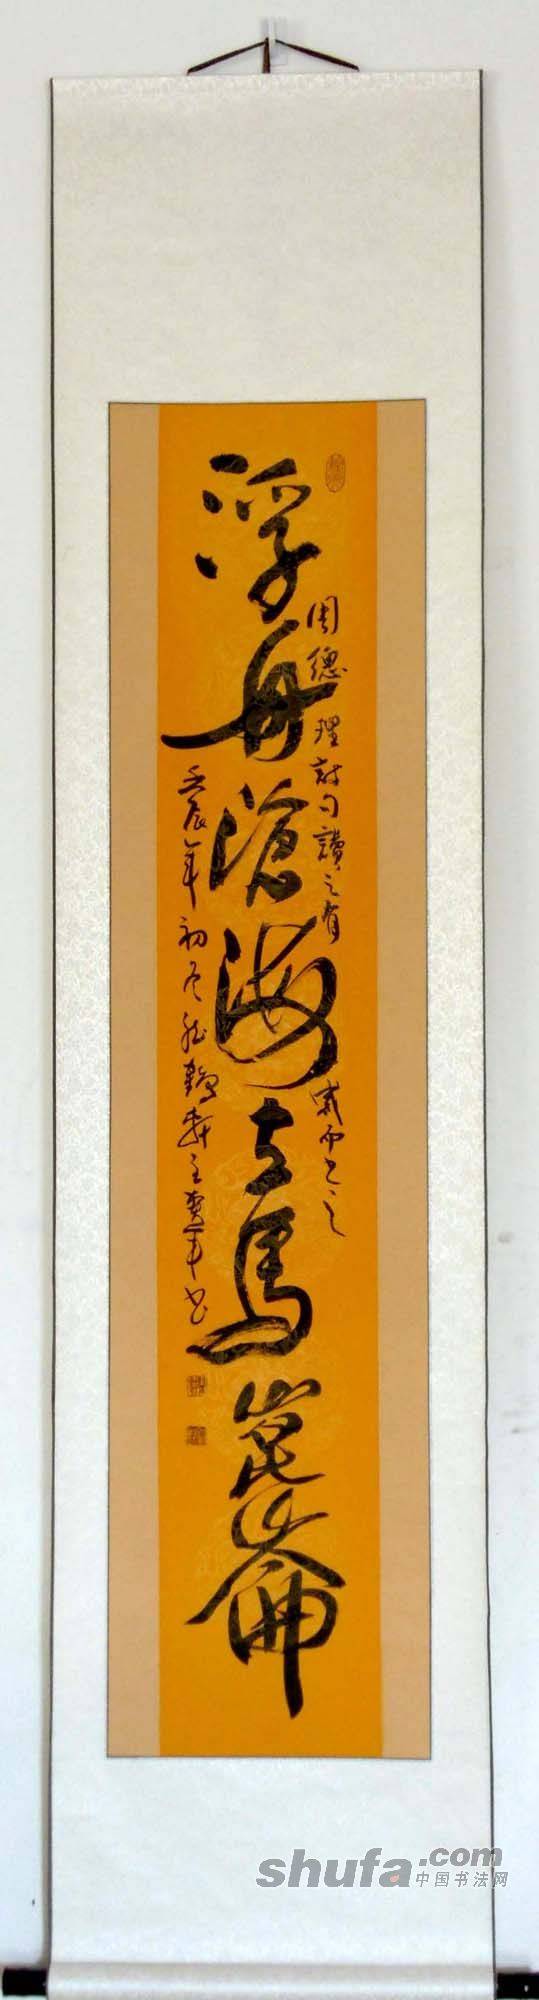 浮舟滄海立馬崑崙
周總理詩句讀之有感而書之
壬辰年初冬 鶴軒主 書
shufa.com
中国书法网